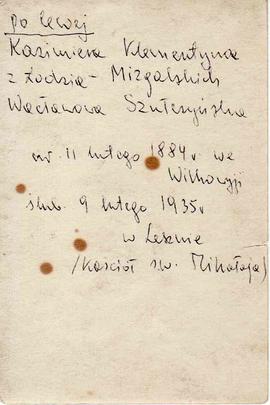 po lewej
Kazimiera Klementyna
z Łodzia - Mizgalskich
Wacławowa Szułczyńska
ur. 11 lutego 1884 r. we
Wilkowyji
ślub. 9 lutego 1935 r
w Lesznie
/Kościół św. Mikołaja/